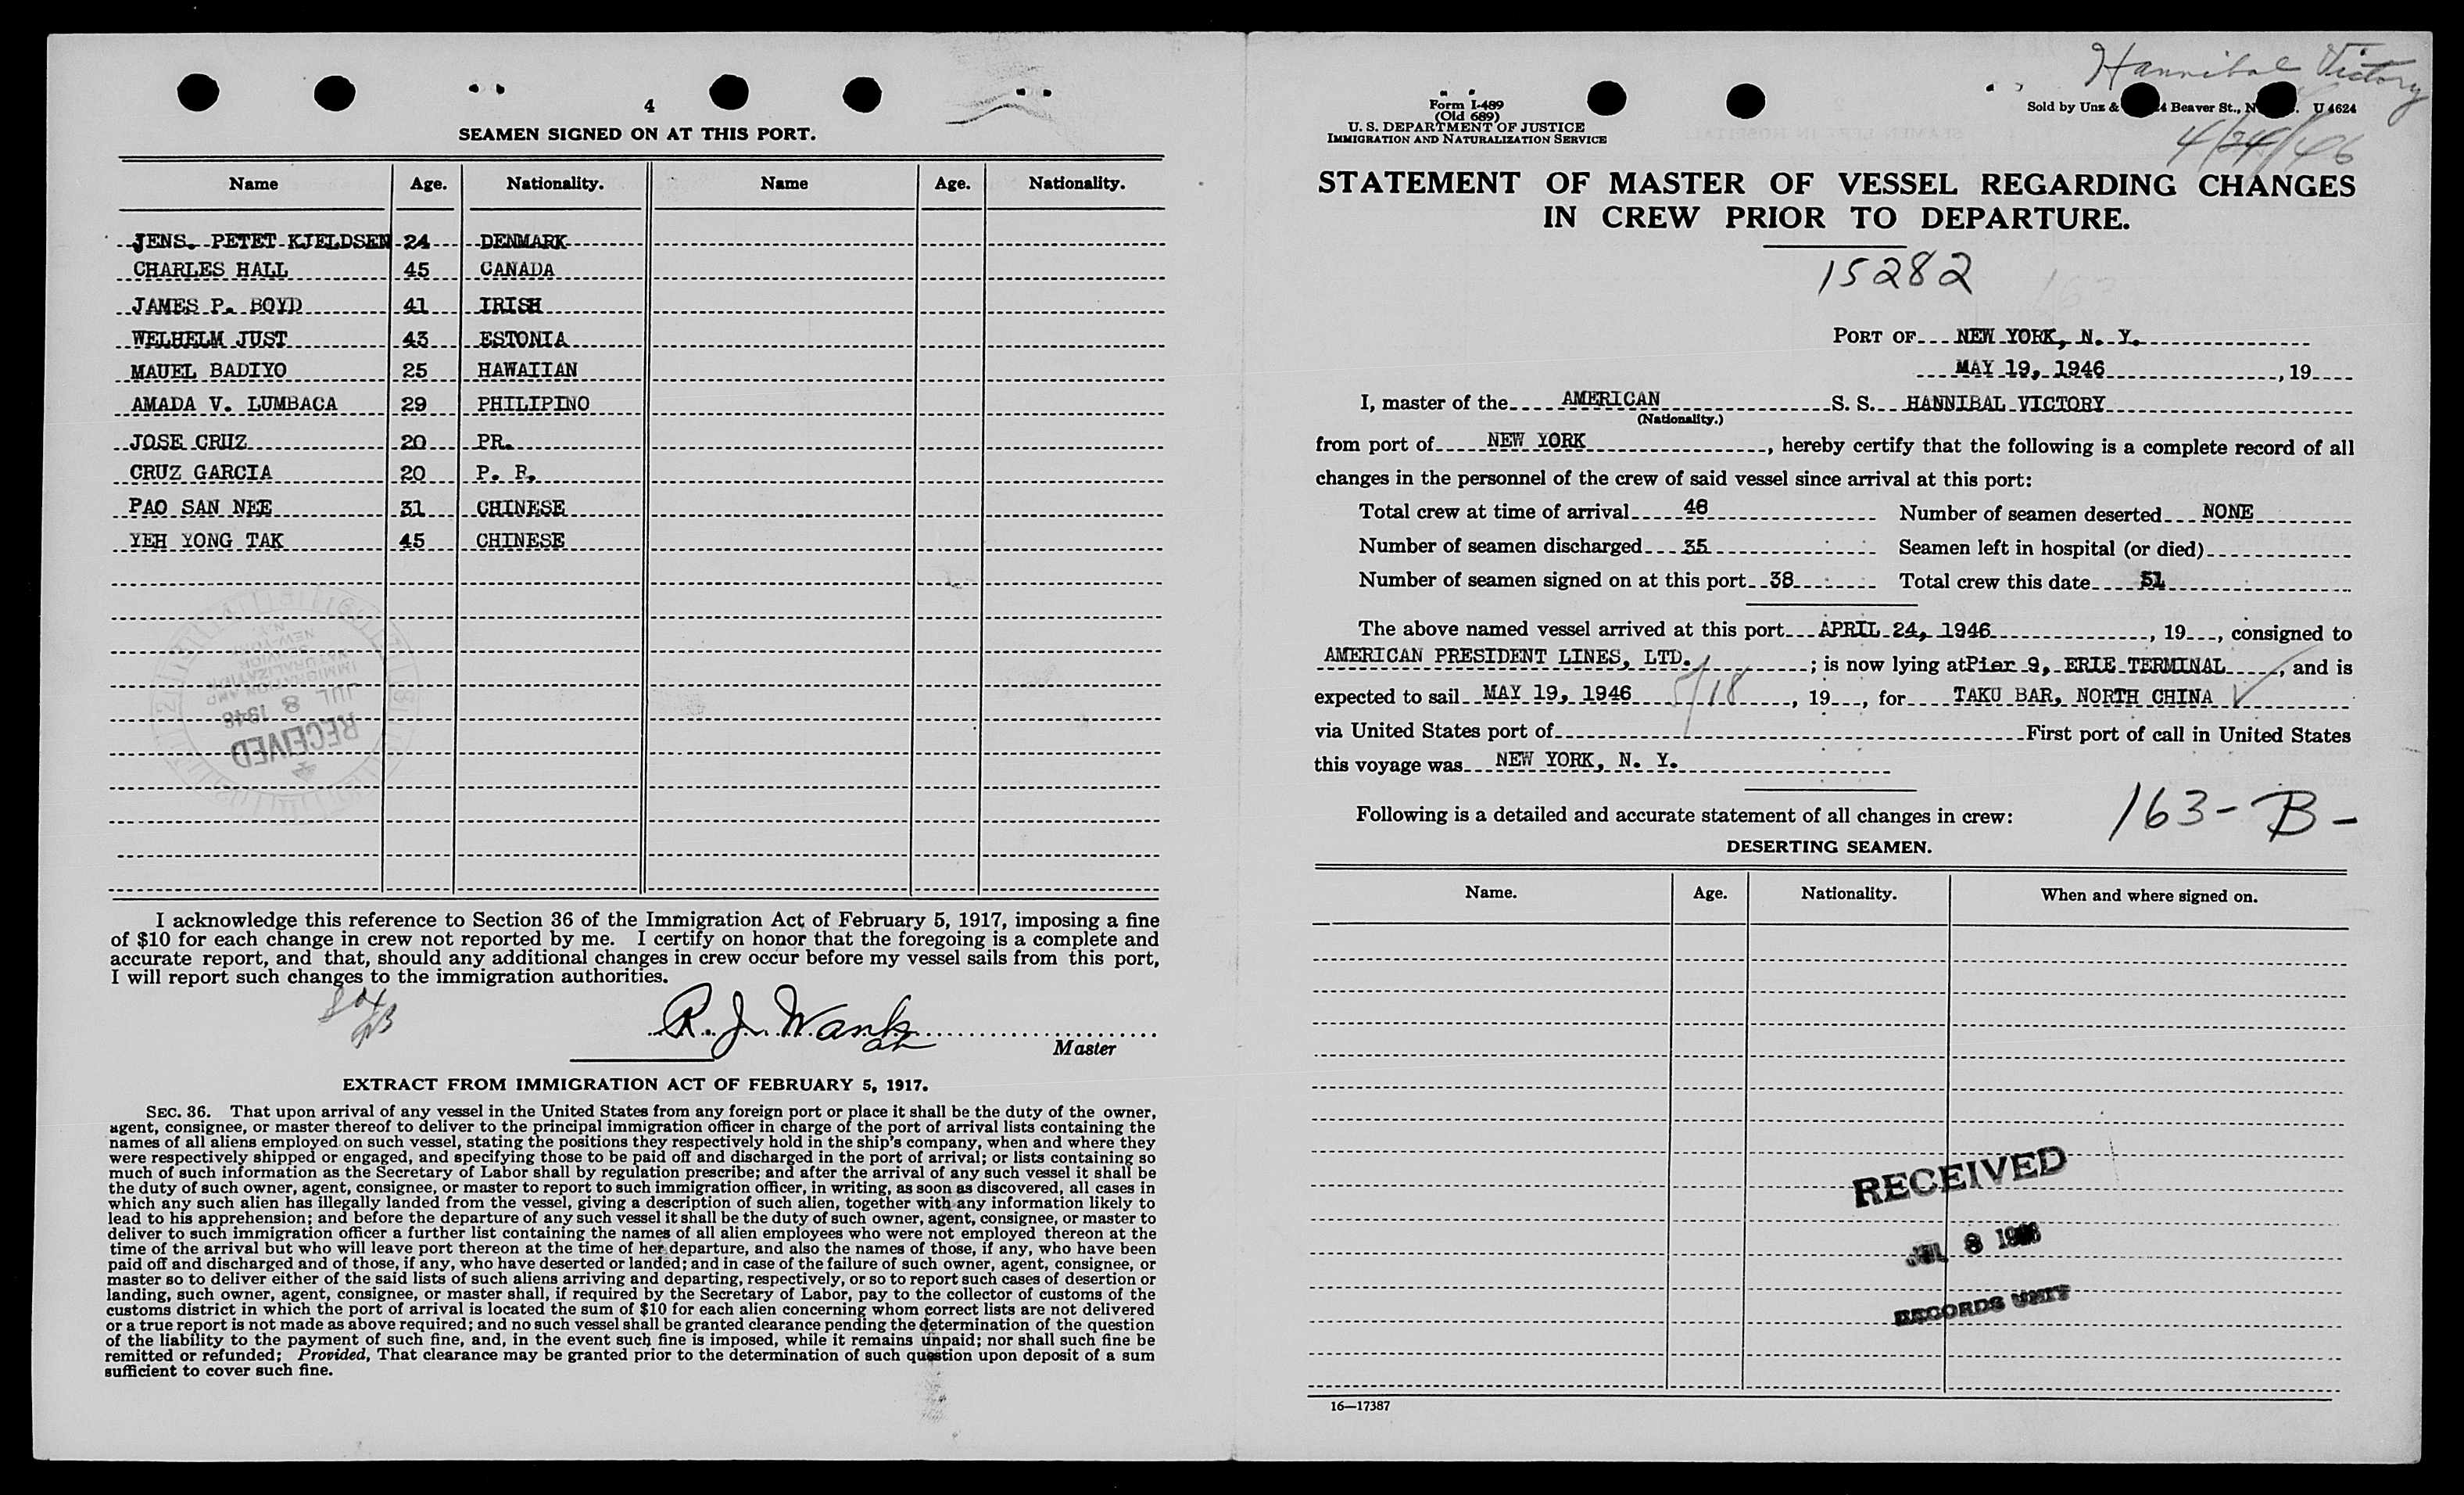 4
SEAMEN SIGNED ON AT THIS PORT.
Name Age. Nationality. Name Age. Nationality.
JENS. PETET KJELDSEN 24 DENMARK
CHARLES HALL 45 CANADA
JAMES P. BOYD 41 IRISH
WELHELM JUST 43 ESTONIA
MAUEL BADIYO 25 HAWAIIAN
AMADA V. LUMBACA 29 PHILIPINO
JOSE CRUZ 20 PR.
CRUZ GARCIA 20 P. R.
PAO SAN NEE 31 CHINESE
YEH YONG TAK 45 CHINESE
RECEIVED
JUL 8 1946
IMMIGRATION AND
NATURALIZATION
I acknowledge this reference to Section 36 of the Immigration Act of February 5, 1917, imposing a fine
of $10 for each change in crew not reported by me. I certify on honor that the foregoing is a complete and
accurate report, and that, should any additional changes in crew occur before my vessel sails from this port,
I will report such changes to the immigration authorities.
R. J. Wank
Master
EXTRACT FROM IMMIGRATION ACT OF FEBRUARY 5, 1917.
SEC. 36. That upon arrival of any vessel in the United States from any foreign port or place it shall be the duty of the owner,
agent, consignee, or master thereof to deliver to the principal immigration officer in charge of the port of arrival lists containing the
names of all aliens employed on such vessel, stating the positions they respectively hold in the ship's company, when and where they
were respectively shipped or engaged, and specifying those to be paid off and discharged in the port of arrival; or lists containing so
much of such information as the Secretary of Labor shall by regulation prescribe; and after the arrival of any such vessel it shall be
the duty of such owner, agent, consignee, or master to report to such immigration officer, in writing, as soon as discovered, all cases in
which any such alien has illegally landed from the vessel, giving a description of such alien, together with any information likely to
lead to his apprehension; and before the departure of any such vessel it shall be the duty of such owner, agent, consignee, or master to
deliver to such immigration officer a further list containing the names of all alien employees who were not employed thereon at the
time of the arrival but who will leave port thereon at the time of her departure, and also the names of those, if any, who have been
paid off and discharged and of those, if any, who have deserted or landed; and in case of the failure of such owner, agent, consignee, or
master so to deliver either of the said lists of such aliens arriving and departing, respectively, or so to report such cases of desertion or
landing, such owner, agent, consignee, or master shall, if required by the Secretary of Labor, pay to the collector of customs of the
customs district in which the port of arrival is located the sum of $10 for each alien concerning whom correct lists are not delivered
or a true report is not made as above required; and no such vessel shall be granted clearance pending the determination of the question
of the liability to the payment of such fine, and, in the event such fine is imposed, while it remains unpaid; nor shall such fine be
remitted or refunded; Provided, That clearance may be granted prior to the determination of such question upon deposit of a sum
sufficient to cover such fine.
Hannibal Victory
Form I-489
(Old 689)
U. S. DEPARTMENT OF JUSTICE
IMMIGRATION AND NATURALIZATION SERVICE
Sold by Unz & Beaver St., U 4624
4/24/46
STATEMENT OF MASTER OF VESSEL REGARDING CHANGES
IN CREW PRIOR TO DEPARTURE.
15282
163
PORT OF NEW YORK, N. Y.
MAY 19, 1946, 19
I, master of the AMERICAN S. S. HANNIBAL VICTORY
(Nationality.)
from port of NEW YORK, hereby certify that the following is a complete record of all
changes in the personnel of the crew of said vessel since arrival at this port:
Total crew at time of arrival 48 Number of seamen deserted NONE
Number of seamen discharged 35 Seamen left in hospital (or died)
Number of seamen signed on at this port 38 Total crew this date 51
The above named vessel arrived at this port APRIL 24, 1946, 19, consigned to
AMERICAN PRESIDENT LINES, LTD.; is now lying at Pier 9, ERIE TERMINAL, and is
expected to sail MAY 19, 1946 5/18, 19, for TAKU BAR, NORTH CHINA ✓
via United States port of First port of call in United States
this voyage was NEW YORK, N. Y.
Following is a detailed and accurate statement of all changes in crew:
163-B-
DESERTING SEAMEN.
Name. Age. Nationality. When and where signed on.
RECEIVED
JUL 8 1946
RECORDS UNIT
16—17387